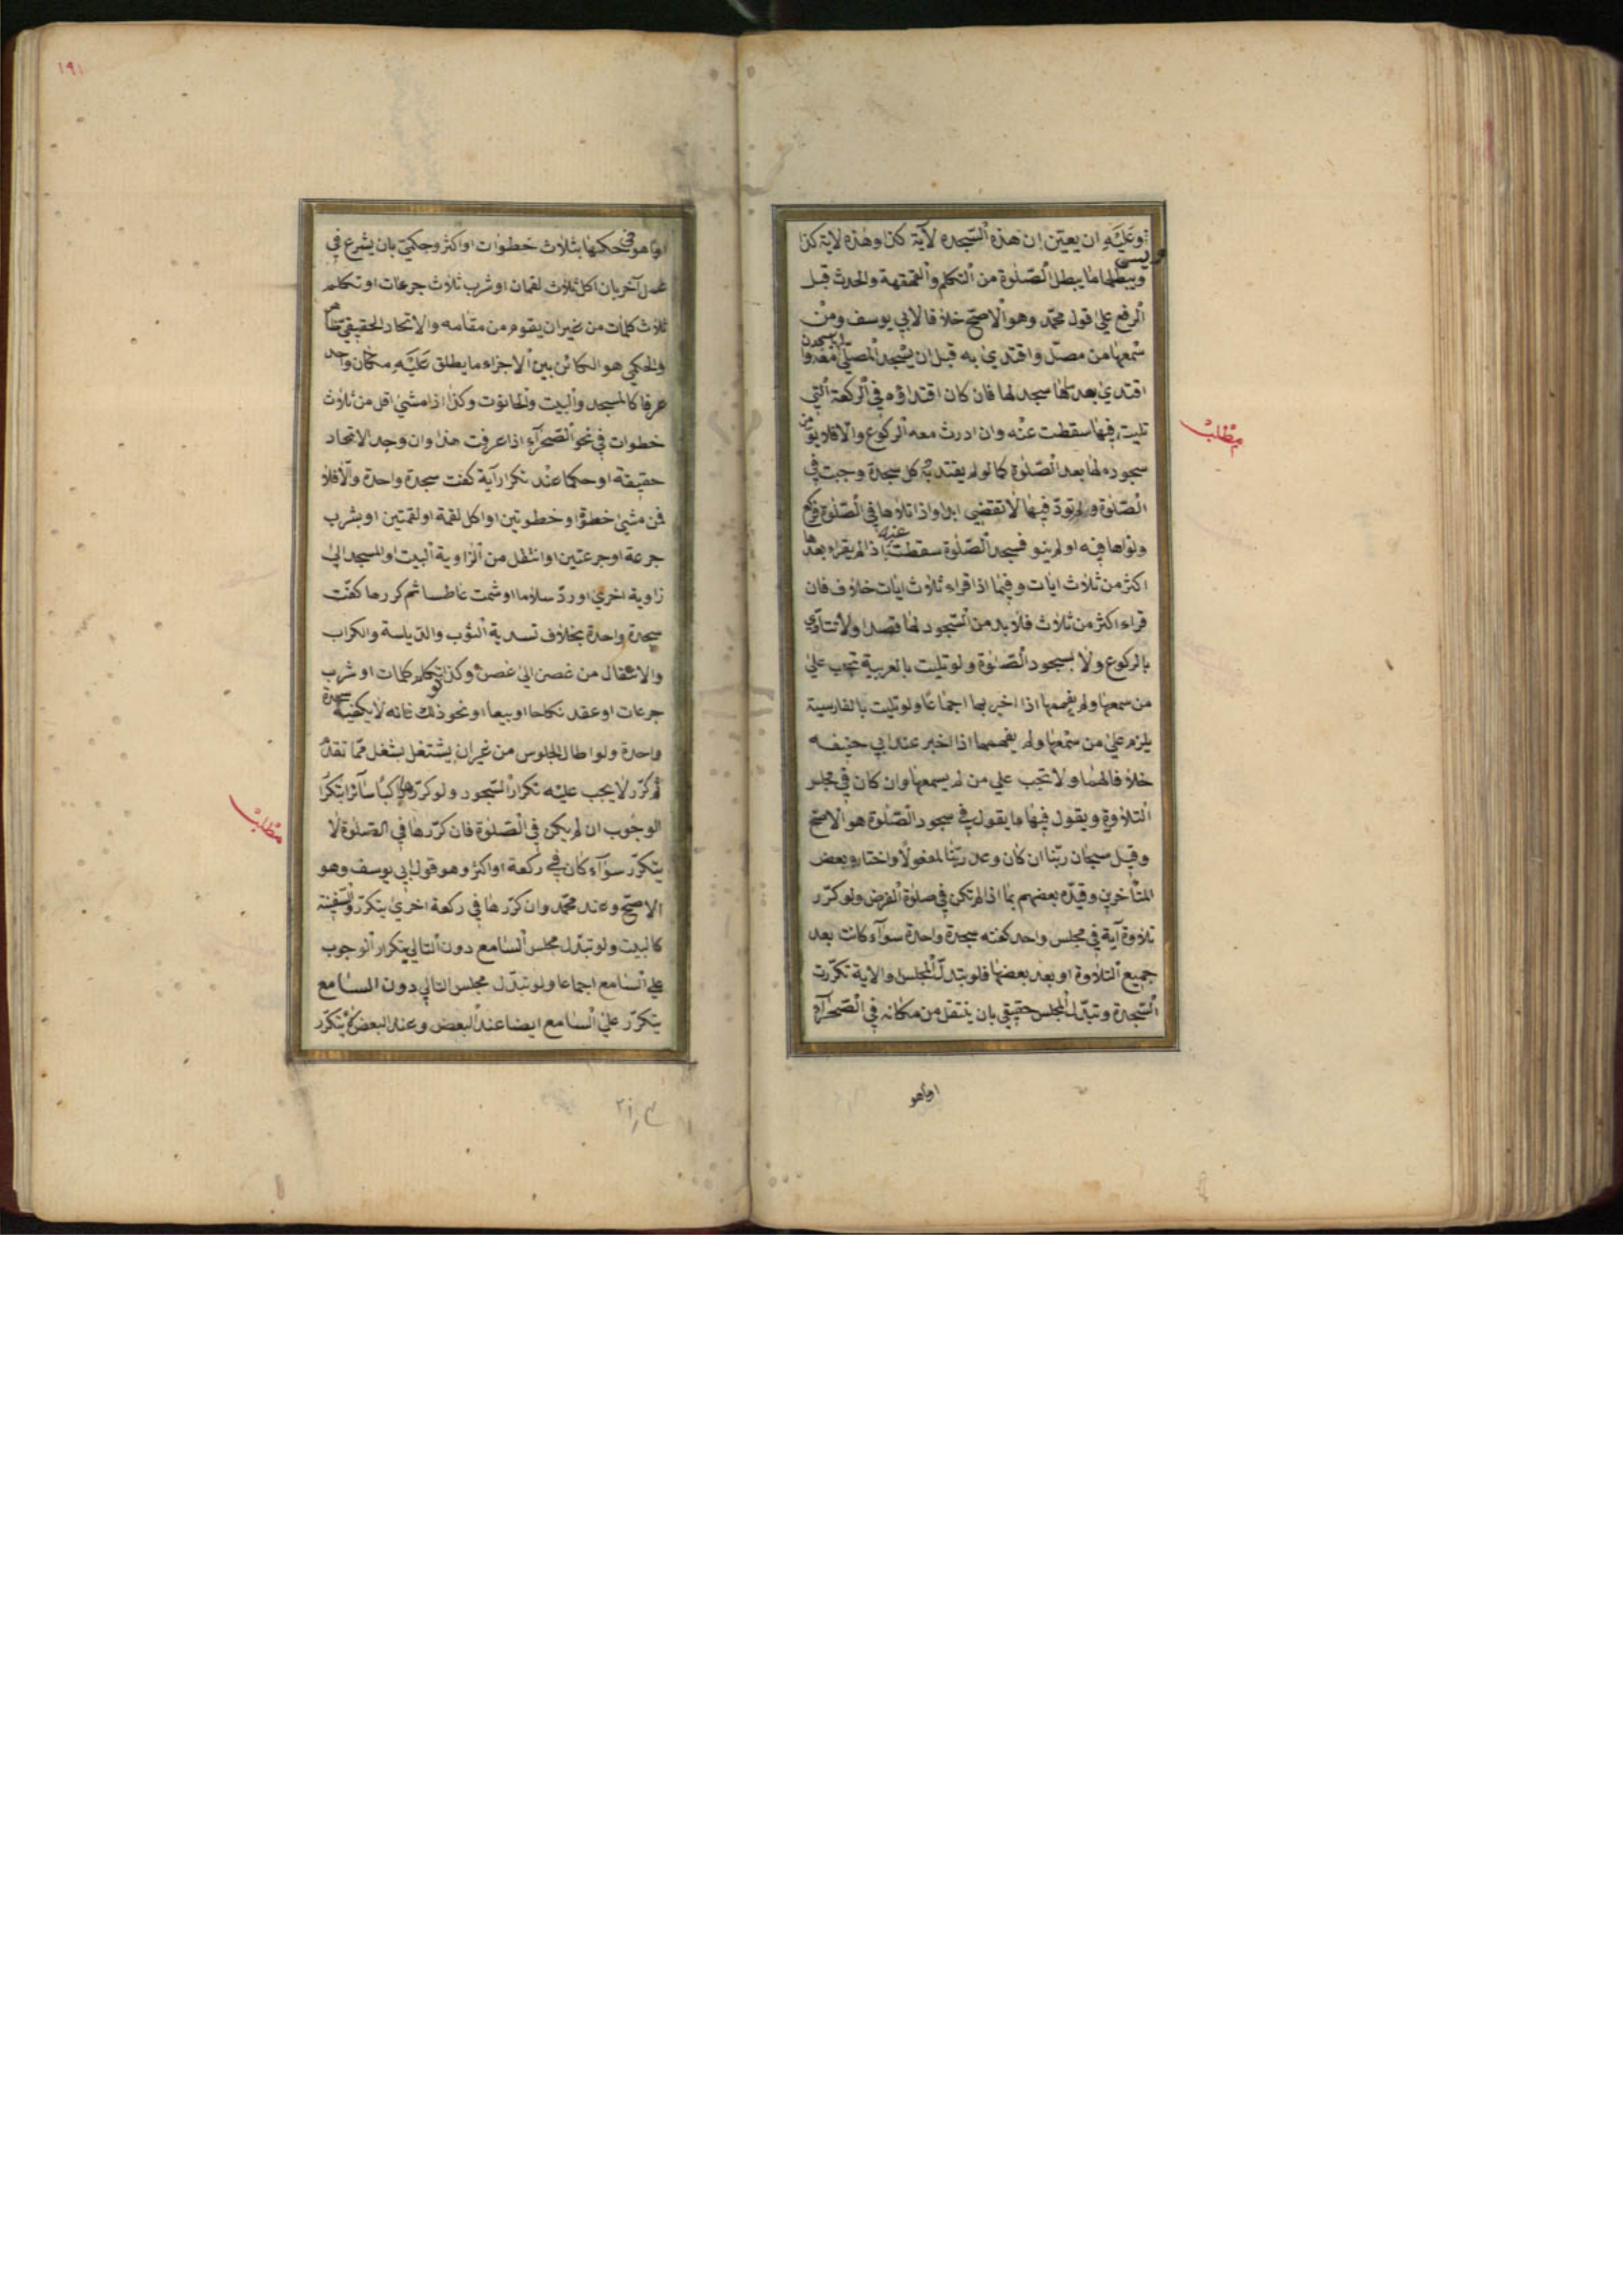 وعليه ان يعين ان هذه السجدة لآية كذا وهذه لاية كذا
ويبطلها ما يبطل الصلوة من التكلم والقهقهة والحدث قبل
الرفع على قول محمد وهو الاصح خلافا لابي يوسف ومن
سمعها من مصل واقتدى به قبل ان يسجد المصلي لها سجد معه ولو
اقتدى بعد ما سجد لها فان كان اقتداؤه في الركعة التي
تليت فيها سقطت عنه وان ادرك معه الركوع والا فلا بد من
سجوده لها بعد الصلوة كما لو لم يقتد به كل سجدة وجبت في
الصلوة ولم تؤد فيها لا تقضى ابدا واذا تلاها في الصلوة فركع
ونواها فيه او لم ينو فسجد للصلوة سقطت عنه اذا لم يقراء بعدها
اكثر من ثلاث ايات وفيما اذا قراء ثلاث ايات خلاف فان
قراء اكثر من ثلاث فلا بد من السجود لها قصدا ولا تتأدى
بالركوع ولا بسجود الصلوة ولو تليت بالعربية تجب على
من سمعها ولم يفهمها اذا اخبر بها اجماعا ولو تليت بالفارسية
يلزم على من سمعها ولم يفهمها اذا اخبر عند ابي حنيفه
خلافا لهما ولا تجب على من لم يسمعها وان كان في مجلس
التلاوة ويقول فيها ما يقول في سجود الصلوة هو الاصح
وقيل سبحان ربنا ان كان وعد ربنا لمفعولا واختاره بعض
المتأخرين وقيده بعضهم بما اذا لم تكن في صلوة الفرض ولو كرر
تلاوة آية في مجلس واحد كفته سجدة واحدة سوآء كانت بعد
جميع التلاوة او بعد بعضها فلو تبدل المجلس والاية تكررت
السجدة وتبدل المجلس حقيقي بان ينتقل من مكانه في الصحرآء
او ما هو
مطلب
١٩١
او ما هو في حكمها بثلاث خطوات او اكثر وحكمي بان يشرع في
عمل آخر بان اكل ثلاث لقمات او شرب ثلاث جرعات او تكلم
ثلاث كلمات من غير ان يقوم من مقامه والاتحاد الحقيقي ظاهر
والحكمي هو الكائن بين الاجزاء ما يطلق عليه مكان واحد
عرفا كالمسجد والبيت والحانوت وكذا اذا مشى اقل من ثلاث
خطوات في نحو الصحرآء اذا عرفت هذا وان وجد الاتحاد
حقيقة او حكما عند تكرار آية كفت سجدة واحدة والا فلا
فمن مشى خطوة او خطوتين او اكل لقمة او لقمتين او بشرب
جرعة او جرعتين او انتقل من الزاوية البيت او المسجد الى
زاوية اخرى او رد سلاما او شمت عاطسا ثم كررها كفت
سجدة واحدة بخلاف تسدية الثوب والدياسة والكراب
والانتقال من غصن الى غصن وكذا لو تكلم كلمات او شرب
جرعات او عقد نكاحا او بيعا او نحو ذلك فانه لا يكفيه سجدة
واحدة ولو اطال الجلوس من غير ان يشتغل بشغل مما تقدم
ثم كرر لا يجب عليه تكرار السجود ولو كررها راكبا سآئرا يتكرر
الوجوب ان لم يكن في الصلوة فان كررها في الصلوة لا
يتكرر سوآء كان في ركعة او اكثر وهو قول ابي يوسف وهو
الاصح وعند محمد وان كررها في ركعة اخرى يتكرر والسفينة
كالبيت ولو تبدل مجلس السامع دون التالي يتكرر الوجوب
على السامع اجماعا ولو تبدل مجلس التالي دون السامع
يتكرر على السامع ايضا عند البعض وعند البعض لا يتكرر
مطلب